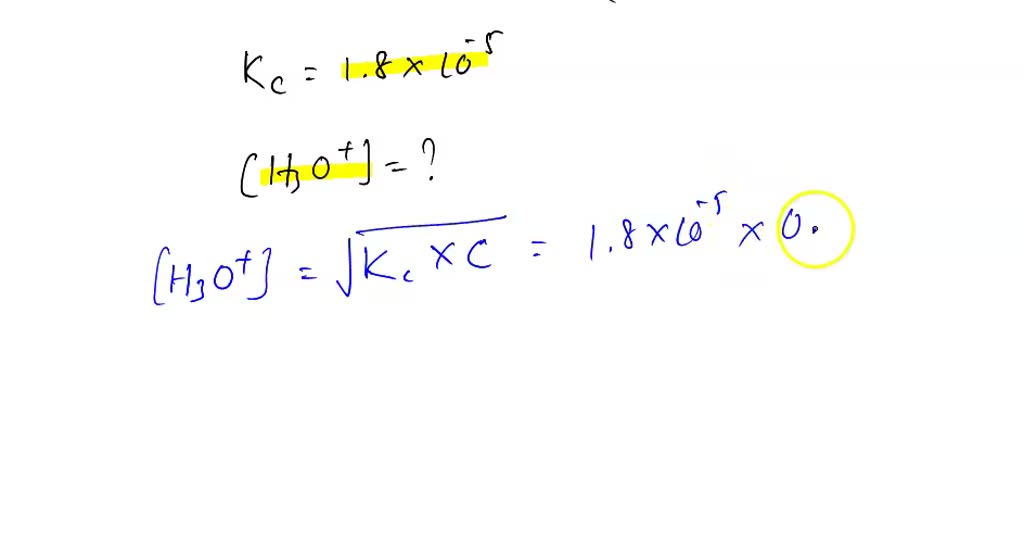 Kc = 1.8 × 10⁻⁵
[H₃O⁺] = ?
[H₃O⁺] = √Kc × C = 1.8 × 10⁻⁵ × 0.